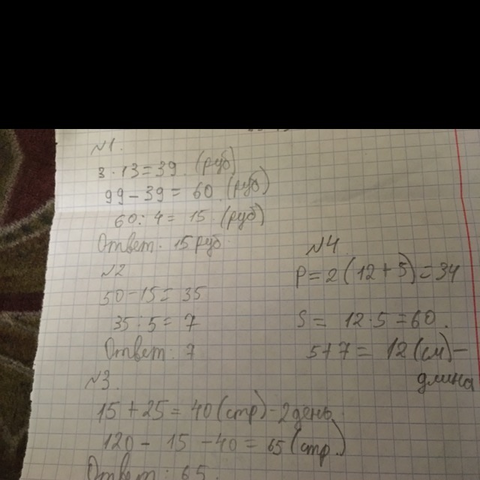 №1.
3·13=39 (руб)
99-39=60 (руб)
60:4=15 (руб)
Ответ. 15 руб
№2
50-15=35
35:5=7
Ответ: 7
№3.
15+25=40 (стр)-2 день.
120-15-40=65 (стр.)
Ответ: 65.
№4
P=2(12+5)=34
S=12·5=60.
5+7=12 (см)-
длина